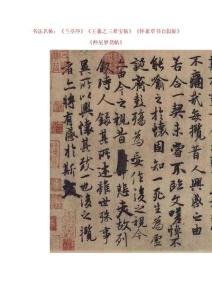 书法名称：《兰亭序》《王羲之三希宝帖》《怀素草书自叙帖》
不痛哉每攬昔人興感之由
若合一契未嘗不臨文嗟悼不
能喻之於懷固知一死生為虛
誕齊彭殤為妄作後之視今
亦由今之視昔悲夫故列
敘時人錄其所述雖世殊事
異所以興懷其致一也後之攬
者亦將有感於斯文